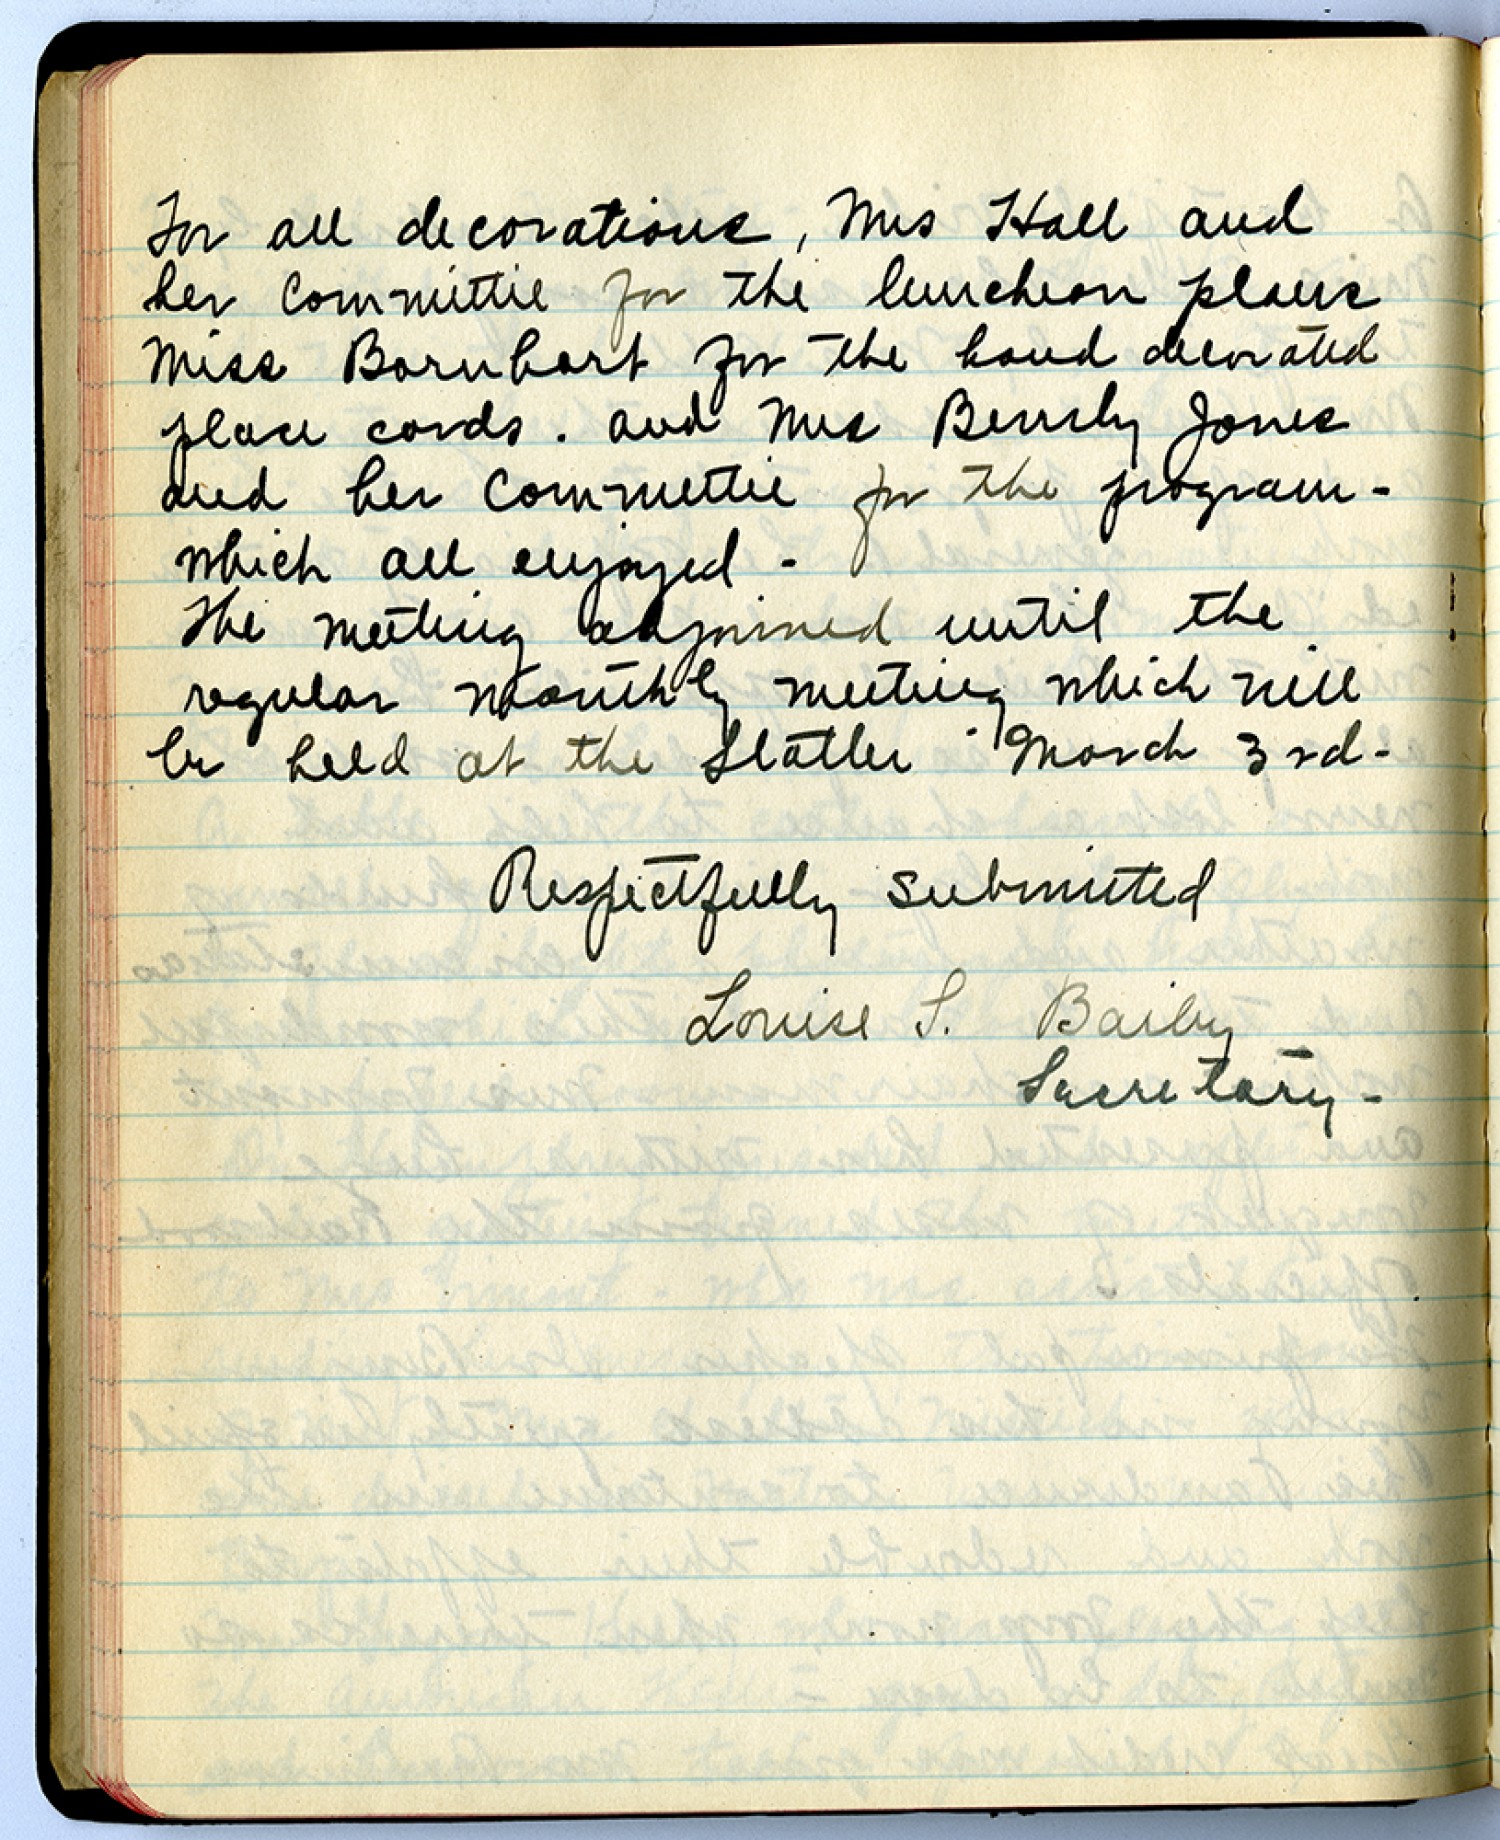 For all decorations, Mrs Hall and
her committee for the luncheon plans
Miss Barnhart for the hand decorated
place cards. and Mrs Beverly Jones
and her committee for the program-
which all enjoyed -
The meeting adjourned until the
regular monthly meeting which will
be held at the Statler March 3rd-
Respectfully submitted
Louise S. Bailey
Secretary-